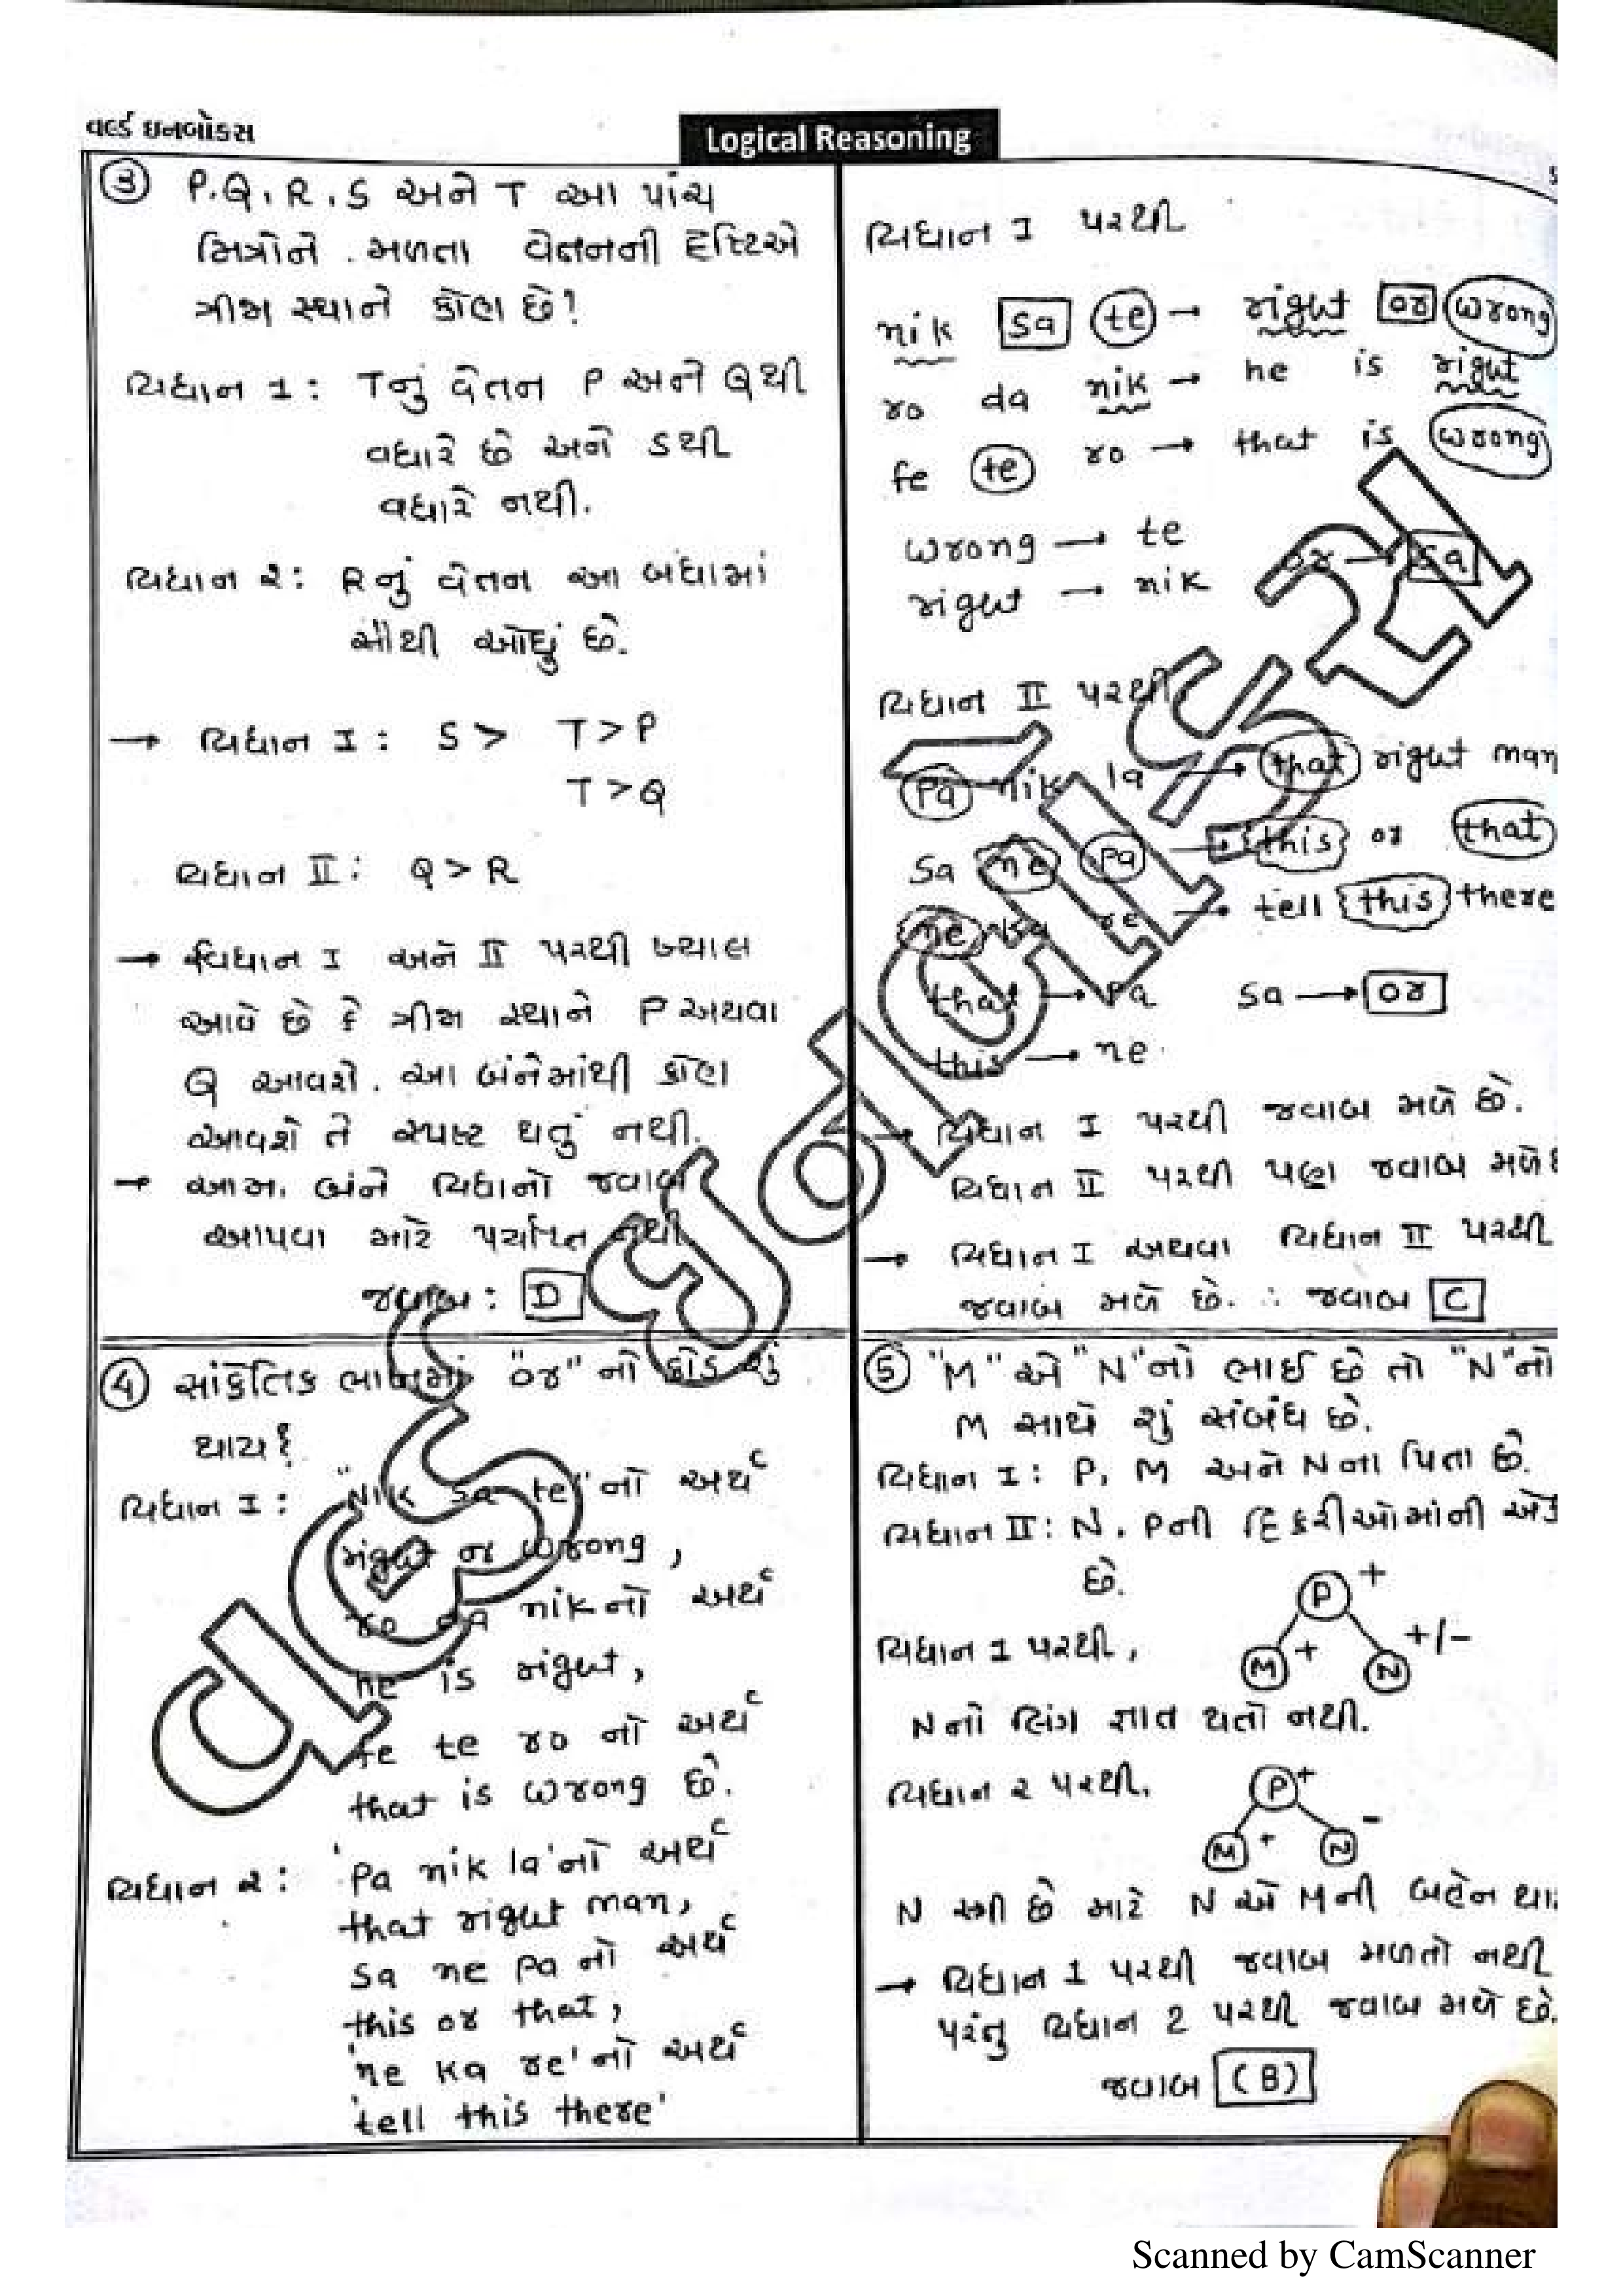 વર્લ્ડ ઇનબોક્સ
Logical Reasoning
③ P.Q, R, S અને T આ પાંચ
મિત્રોને મળતા વેતનની દૃષ્ટિએ
ત્રીજા સ્થાને કોણ છે?
વિધાન 1: Tનું વેતન P અને Qથી
વધારે છે અને Sથી
વધારે નથી.
વિધાન ૨: Rનું વેતન આ બધામાં
સૌથી ઓછું છે.
→ વિધાન I: S > T > P
T > Q
વિધાન II: Q > R
→ વિધાન I અને II પરથી ખ્યાલ
આવે છે કે ત્રીજા સ્થાને P અથવા
Q આવશે. આ બંનેમાંથી કોણ
આવશે તે સ્પષ્ટ થતું નથી.
→ આમ, બંને વિધાનો જવાબ
આપવા માટે પર્યાપ્ત નથી
જવાબ: D
④ સાંકેતિક ભાષામાં "or" નો કોડ શું
થાય?
વિધાન I: "Nik sa te" નો અર્થ
right or wrong,
ro da nikનો અર્થ
he is right,
fe te ro નો અર્થ
that is wrong છે.
વિધાન ૨: 'Pa nik la'નો અર્થ
that right man,
sa ne pa નો અર્થ
this or that,
'ne ka re'નો અર્થ
'tell this there'
વિધાન I પરથી
nik sa te → right or wrong
ro da nik → he is right
fe te ro → that is wrong
wrong → te
or → sa
right → nik
વિધાન II પરથી
Pa nik la → that right man
sa ne pa → this or that
ne ka re → tell this there
that → Pa sa → or
this → ne
→ વિધાન I પરથી જવાબ મળે છે.
વિધાન II પરથી પણ જવાબ મળે છે
→ વિધાન I અથવા વિધાન II પરથી
જવાબ મળે છે. ∴ જવાબ C
⑤ "M" એ "N"નો ભાઈ છે તો "N"નો
M સાથે શું સંબંધ છે.
વિધાન I: P, M અને Nના પિતા છે.
વિધાન II: N, Pની દિકરીઓમાંની એક
છે.
P +
વિધાન 1 પરથી, M + N +/-
Nનો લિંગ જ્ઞાત થતો નથી.
વિધાન ૨ પરથી, P +
M + N -
N સ્ત્રી છે માટે N એ Mની બહેન થાય
→ વિધાન 1 પરથી જવાબ મળતો નથી
પરંતુ વિધાન 2 પરથી જવાબ મળે છે.
જવાબ (B)
Scanned by CamScanner